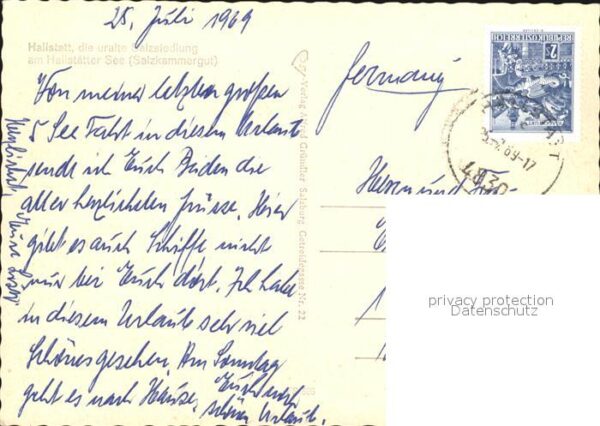 25. Juli 1969
Hallstatt, die uralte Salzsiedlung
am Hallstätter See (Salzkammergut)
Von meiner letzten großen
5 See Fahrt in diesem Urlaub
sende ich Euch Beiden die
aller herzlichsten Grüsse. Hier
gibt es auch Schiffe nicht
nur bei Euch dort. Ich habe
in diesem Urlaub sehr viel
Schönes gesehen. Am Sonntag
geht es nach Hause, Euch noch
schönen Urlaub.
Herzlichst Eure
Verlag Gründler Salzburg, Getreidegasse Nr. 22
Germany
REPUBLIK ÖSTERREICH
2
69-17
4830
Herrn und
privacy protection
Datenschutz